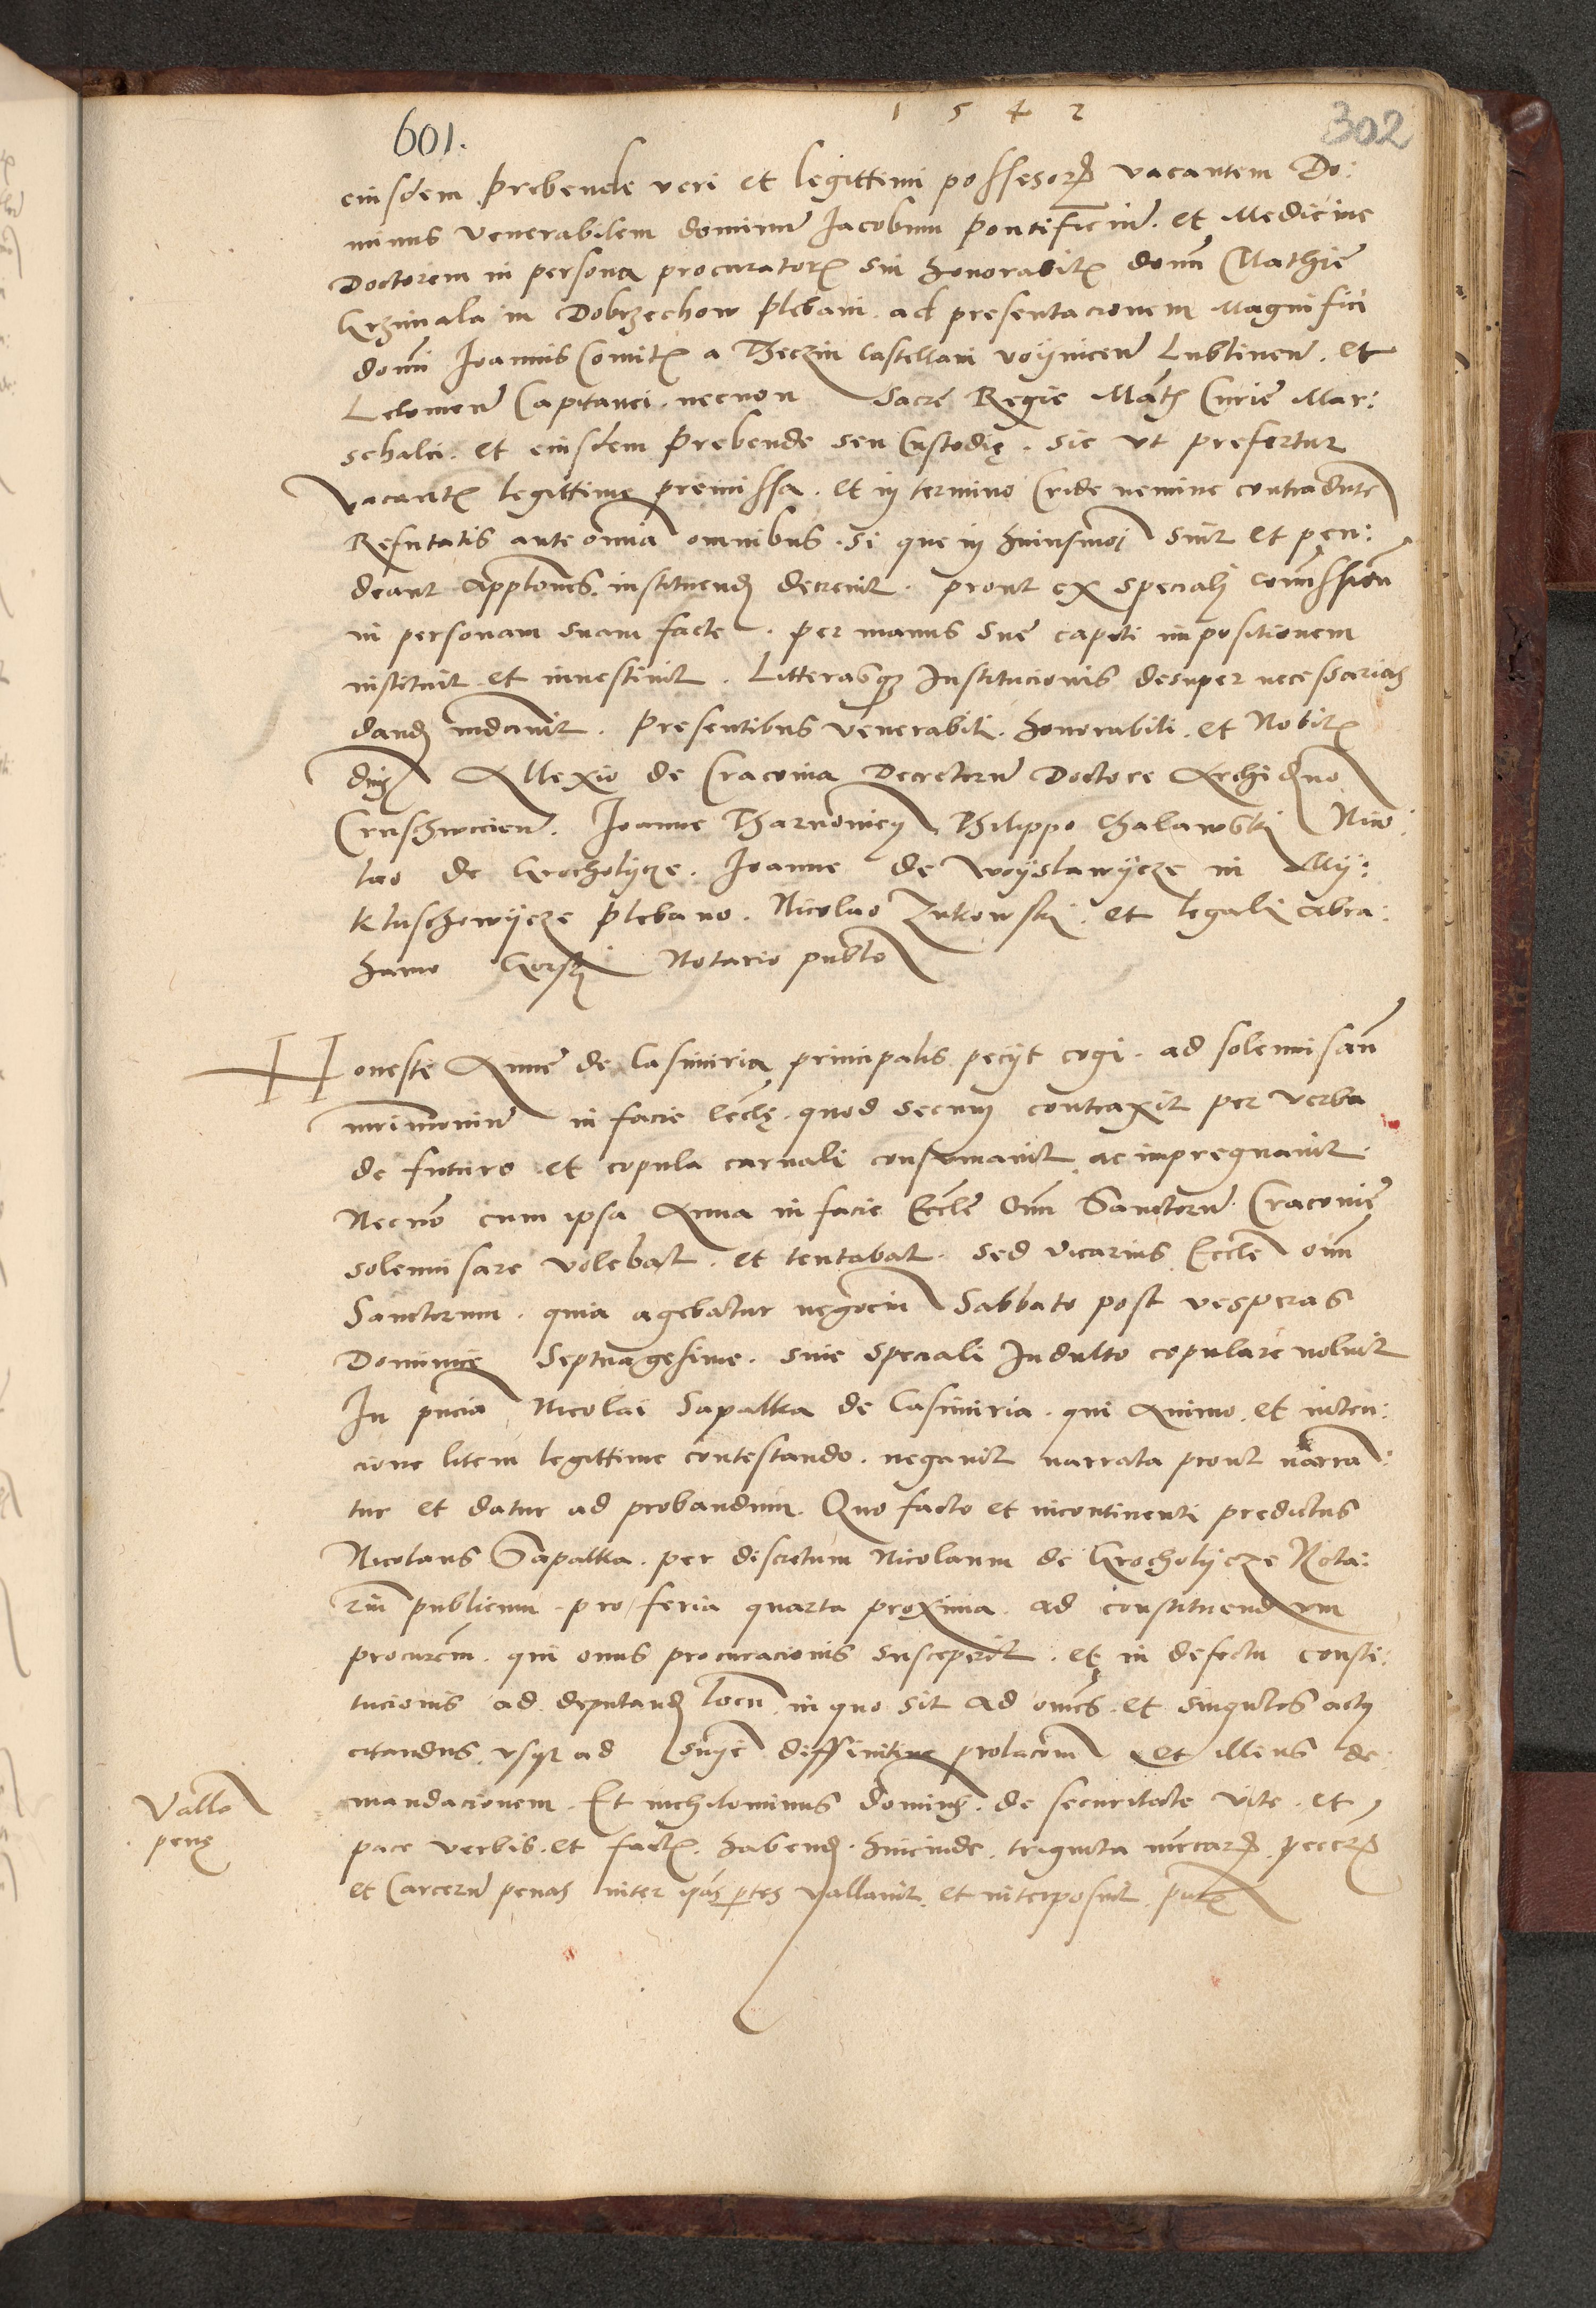 1 5 4 2
601.
302
eiusdem prebende veri et legittimi possesoris vacantem Do:
minus venerabilem dominum Iacobum pontificium. et Medicine
Doctorem in persona procuratoris sui honorabilis domini Mathie
Grzimala in Dobrzechow plebani. ad presentacionem Magnifici
domini Ioannis Comitis a Theczin Castellani voynicen Lublinen. et
Lelowien Capitanei. necnon Sacre Regie Matis Curie Mar:
schalci. et eiusdem prebende seu Custodie. sic ut prefertur
vacantis legittime premissa. et in termino Cride nemine contradicente
Refutatis ante omnia omnibus. si que in huiusmoi sint et pen:
deant appellationes. instituendum decrevit. prout ex speciali comissione
in personam suam facte. per manus sue capiti impositionem
instituit et investivit. Litterasque Institucionis desuper necessarias
dandas mandavit. Presentibus venerabili. honorabili. et Nobilibus
dnis Allexio de Cracovia Decretorum Doctore Archidiacono
Cruschwicien. Ioanne Tharnowiecz Philippo Chalawski Nico:
lao de Grocholycze. Ioanne de Woyslawycze in My:
kluschowycze plebano. Nicolao Zukowski. et legali Abra:
hamo Gorski Notario publico
Honeste Anne de Casimiria principalis pecyt cogi. ad solennisandum
mrimonium in facie Ecclie. quod secum contraxit per verba
de futuro et copula carnali consumavit ac impregnavit.
Necnon cum ipsa Anna in facie Ecclie Omnium Sanctorum Cracovie
solennisare volebat. et tentabat. sed vicarius Ecclie omnium
Sanctorum. quia agebatur negocium Sabbato post vesperas
Dominice Septuagesime. sine speciali Indulto copulare noluit
In pncia Nicolai Sapalka de Casimiria. qui animo. et inten:
cione litem legittime contestando. negavit narrata prout narran:
tur et datur ad probandum. Quo facto et incontinenti predictus
Nicolaus Sapalka. per discretum Nicolaum de Grocholycze Nota:
rium publicum. pro feria quarta proxima. ad constituendum
procurem. qui onus procuracionis susceperit. et in defectu consti:
tucionis ad deputandum locum in quo sit ad omnes. et singulos actus
citandus usque ad snie diffinitive prolacionem et illius de:
mandacionem. Et nichilominus dominus. de securitate vite. et
pace verbis. et factis. habenda. hincinde. triginta mrcarum pecuniarum
et Carcerum penas inter ipsas partes vallavit. et interposuit. pntibus
Vallo
pene